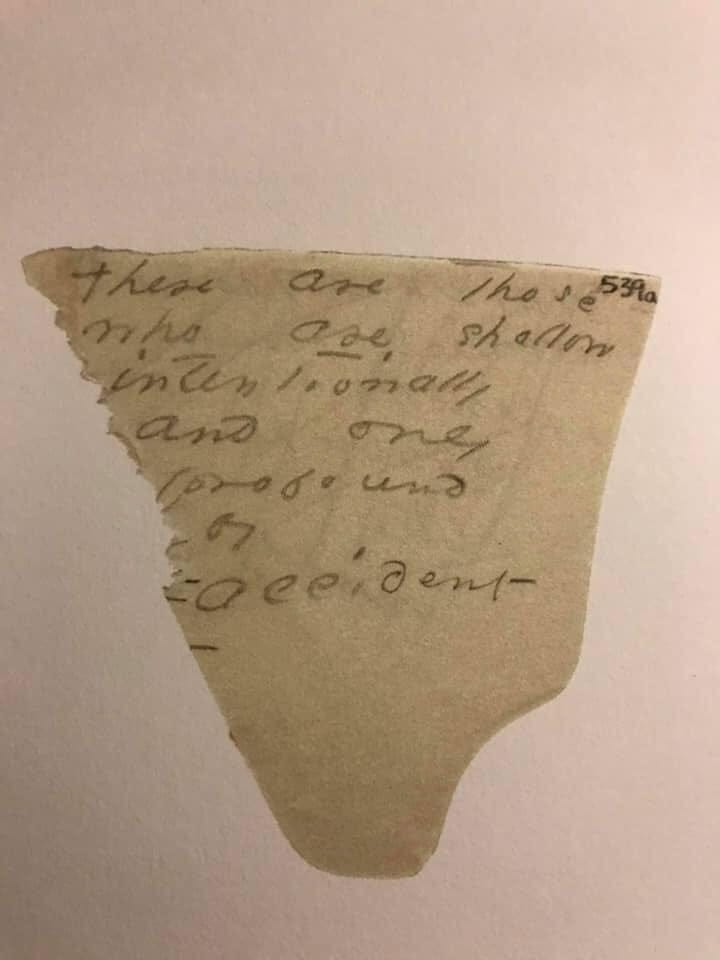 there are those 539a
who are shallow
intentionally
and only
profound
by
accident